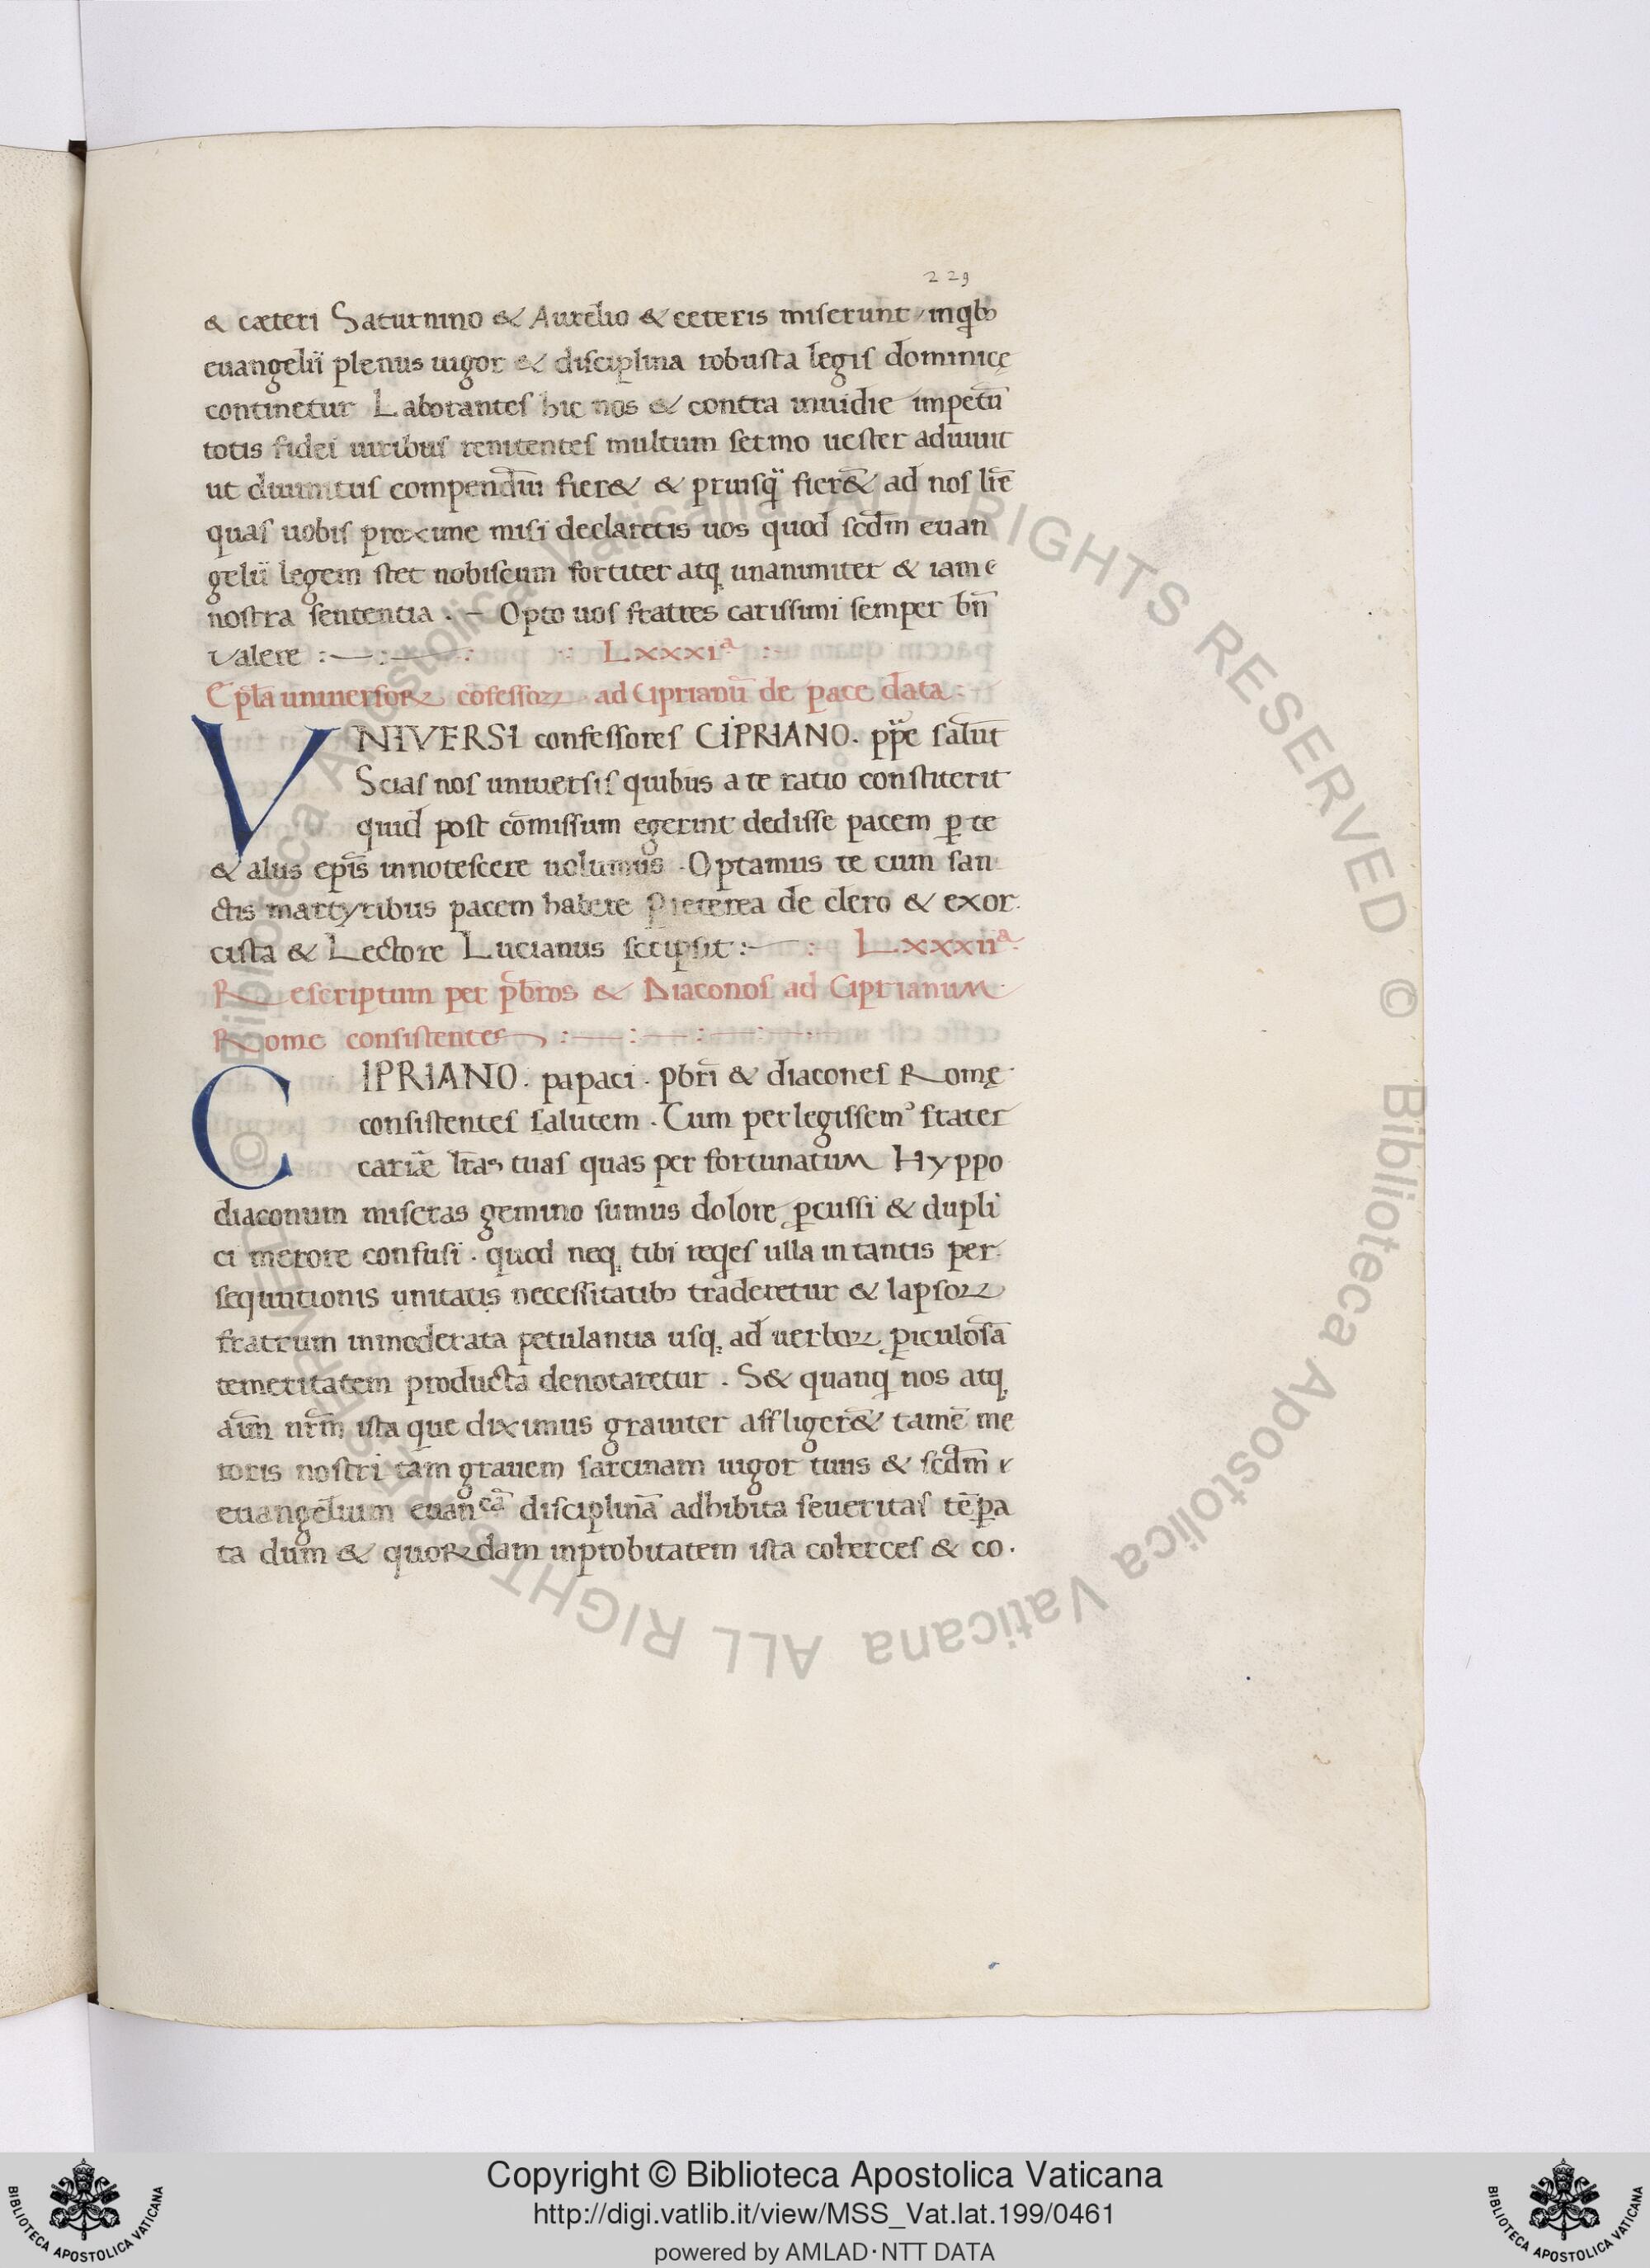 229
& cæteri Saturnino & Aurelio & ceteris miserunt, inqb;
euangelii plenus uigor & disciplina robusta legis dominicę
continetur Laborantes hic nos & contra inuidie impetū
totis fidei uiribus renitentes multum sermo uester adiuuit
ut diuinitus compendiū fier& & priusq̃ fier& ad nos lr̄e
quas uobis proxime misi declaretis uos quod scd̄m euan
gelii legem stet nobiscum fortiter atq; unanimiter & iam e
nostra sententia . — Opto uos fratres carissimi semper bn̄
Valere :—:—: LXXXIª :
Epl̄a uniuersoꝝ cōfessoꝝ . ad Ciprianū de pace data :
VNIVERSI confessores CIPRIANO . pp̄e salut̄
Scias nos uniuersis quibus a te ratio constiterit
quid post cōmissum egerint dedisse pacem & p te
& aliis epīs innotescere uolumus . Optamus te cum san
ctis martyribus pacem habere Preterea de clero & exor
cista & Lectore Lucianus scripsit :— : LXXXIIª
Rescriptum per pb̄ros & Diaconos ad Ciprianum
Rome consistentes :—:—:—:—
CIPRIANO . papaci . pbr̄i & diacones Romę
consistentes salutem . Cum perlegissem⁹ frater
cariē lr̄as tuas quas per fortunatum Hyppo
diaconum miseras gemino sumus dolore ꝑcussi & dupli
ci merore confusi . quod neq; tibi reqes ulla in tantis per
sequutionis unitatis necessitatib; traderetur & lapsoꝝ
fratrum inmoderata petulantia usq; ad uerboꝝ ꝑiculosā
temeritatem producta denotaretur . S& quanq̄ nos atq;
aīm nr̄m ista que diximus grauiter affliger& tamē me
roris nostri tam grauem sarcinam uigor tuus & scd̄m
euangelium euanᶜā disciplinā adhibita seueritas tēpa
ta dum & quoꝝdam inprobitatem ista coherces & co .
Copyright © Biblioteca Apostolica Vaticana
http://digi.vatlib.it/view/MSS_Vat.lat.199/0461
powered by AMLAD·NTT DATA
BIBLIOTECA APOSTOLICA VATICANA
BIBLIOTECA APOSTOLICA VATICANA
© Biblioteca Apostolica Vaticana ALL RIGHTS RESERVED © Biblioteca Apostolica Vaticana ALL RIGHTS RESERVED